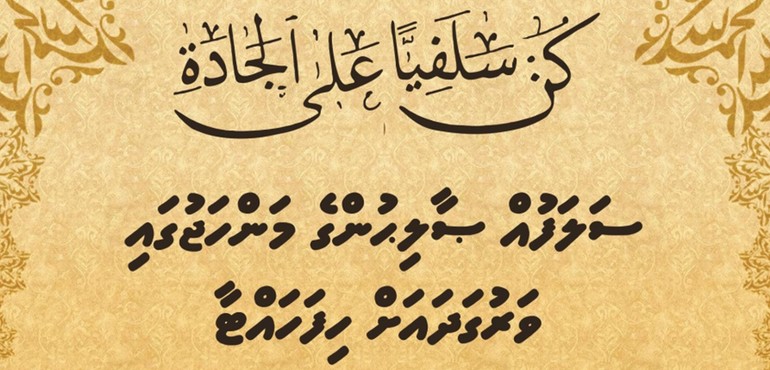 كُن سَلَفِيًّا عَلَى ٱلْجَادَةِ
ސަލަފުއް ޞާލިޙުންގެ މަންހަޖުގައި
ވަރުގަދައަށް ހިފަހައްޓާ